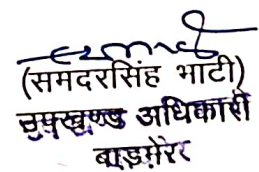 (समदरसिंह भाटी)
उपखण्ड अधिकारी
बाड़मेर